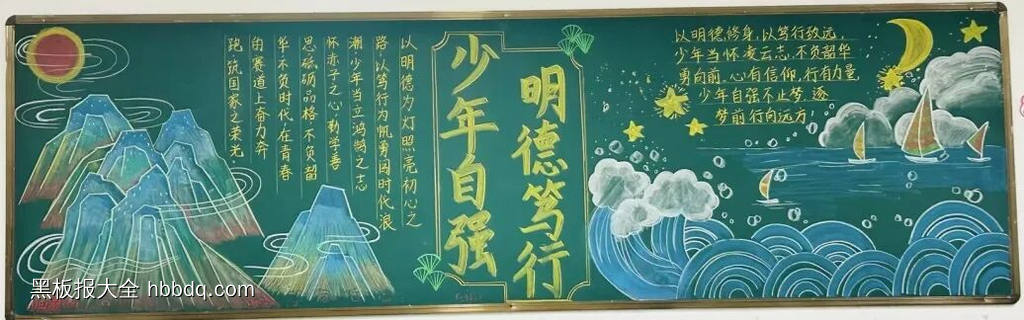 明德笃行
少年自强
以明德为灯照亮初心之
路以笃行为帆勇闯时代浪
潮少年当立鸿鹄之志
怀赤子之心勤学善
思砥砺品格不负韶
华不负时代在青春
的赛道上奋力奔
跑筑国家之荣光
以明德修身,以笃行致远,
少年当怀凌云志,不负韶华
勇向前,心有信仰,行有力量,
少年自强不止梦,逐
梦前行向远方!
黑板报大全 hbbdq.com